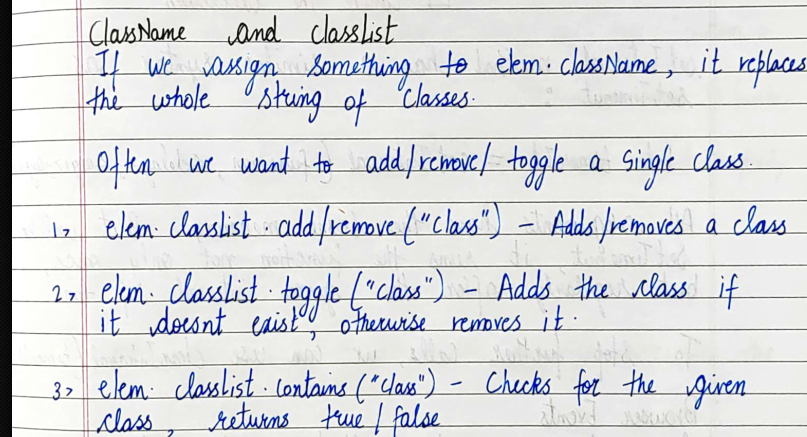 ClassName and classlist
If we assign something to elem. className, it replaces
the whole string of classes.
Often we want to add/remove/ toggle a single class.
1> elem. classlist. add/remove ("class") - Adds/removes a class
2> elem. classlist. toggle ("class") - Adds the class if
it doesnt exist, otherwise removes it.
3> elem. classlist. contains ("class") - Checks for the given
class, returns true / false